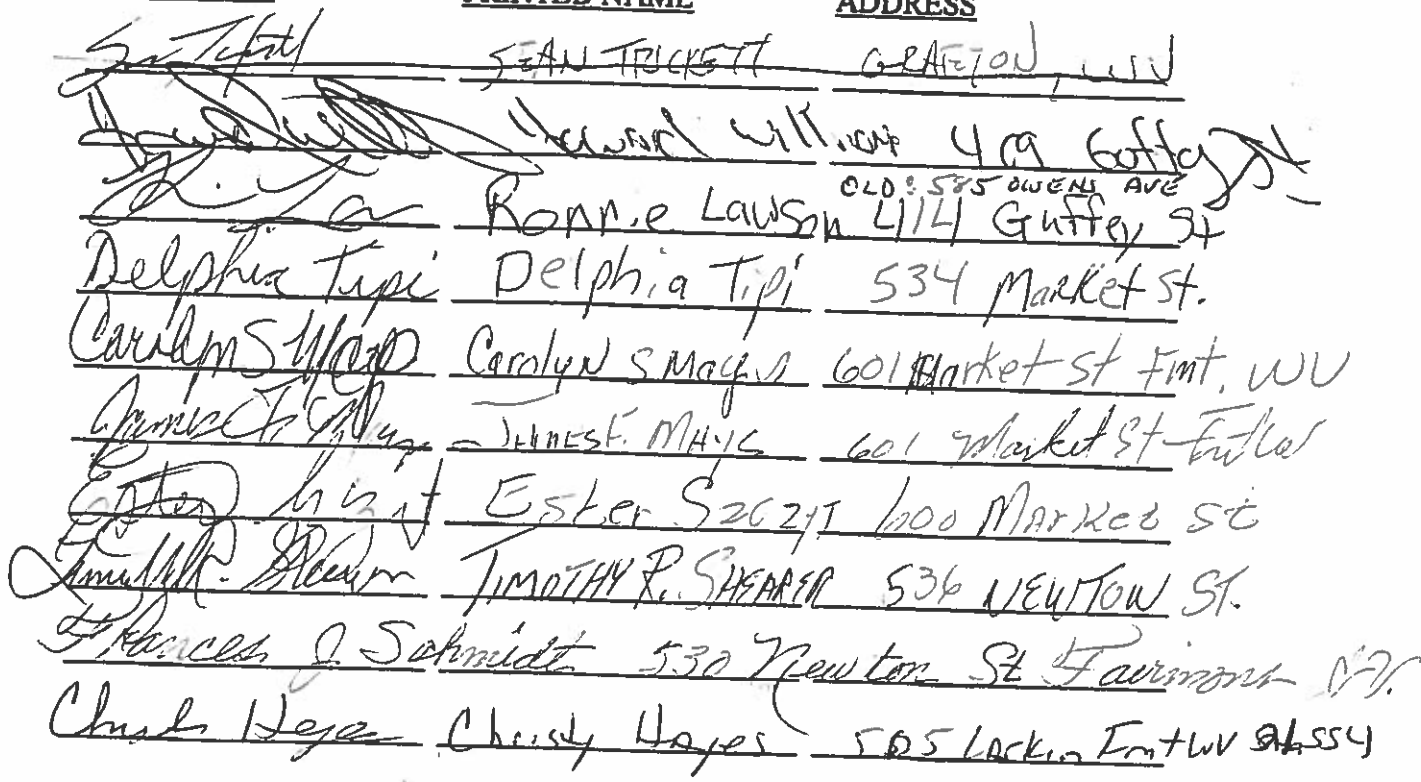 PRINTED NAME ADDRESS
SEAN TRICKETT GRAFTON, WV
Howard Williams 419 Guffey St
OLD: 585 OWENS AVE
Ronnie Lawson 414 Guffey St
Delphia Tipi Delphia Tipi 534 Market St.
Carolyn S Mays Carolyn S Mays 601 Market St Fmt. WV
James F. Mays JAMES F. MAYS 601 Market St
Ester Ester Szczyt 600 Market St
Timothy R. Shearer TIMOTHY R. SHEARER 536 NEWTON ST.
Frances J Schmidt 530 Newton St Fairmont
Christy Hayes Christy Hayes 505 Fmt WV